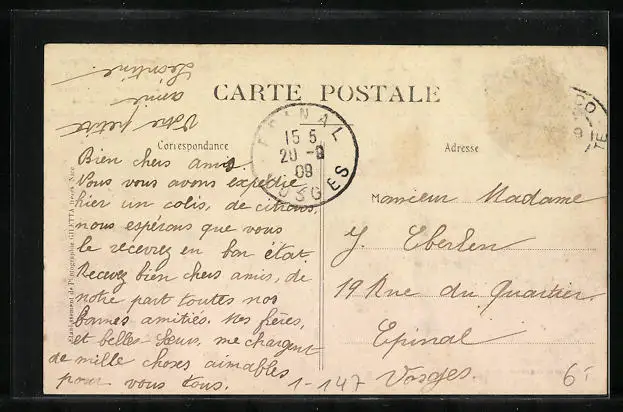 CARTE POSTALE
Correspondance
Adresse
Bien chers amis.
Vous vous avons expédié
hier un colis, de citrons,
nous espérons que vous
le recevrez en bon état.
Recevez bien chers amis, de
notre part toutes nos
bonnes amitiés. Mes frères,
et belles Sœurs, me chargent
de mille choses aimables
pour vous tous.
Votre petite
amie
Léontine.
EPINAL
15 5
20 -9
09
VOSGES
CO
TE
Monsieur Madame
J. Eberlen
19 Rue du Quartier
Epinal
Vosges.
1-147
6-
Etablissement de Photographie GILETTA Nice